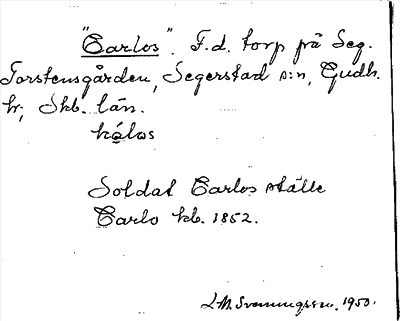 "Carlos". F.d. torp på Seg.
Torstensgården, Segerstad s:n, Gudh.
hr, Skb. län.
Soldat Carlos ställe
Carlo kb. 1852.
1950.